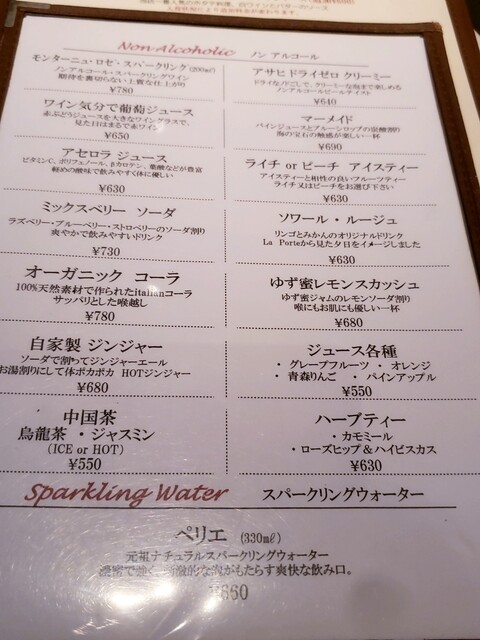 Non Alcoholic ノン アルコール
モンターニュ・ロゼ・スパークリング (200ml)
ノンアルコール・スパークリングワイン
期待を裏切らない上質な仕上がり
¥780
ワイン気分で葡萄ジュース
赤ぶどうジュースを大きなワイングラスで、
見た目はまるで赤ワイン
¥650
アセロラ ジュース
ビタミンC、ポリフェノール、βカロテン、葉酸などが豊富
軽めの酸味で飲みやすく体に優しい
¥630
ミックスベリー ソーダ
ラズベリー・ブルーベリー・ストロベリーのソーダ割り
爽やかで飲みやすいドリンク
¥730
オーガニック コーラ
100%天然素材で作られたitalianコーラ
サッパリとした喉越し
¥780
自家製 ジンジャー
ソーダで割ってジンジャーエール
お湯割りにして体ポカポカ HOTジンジャー
¥680
中国茶
烏龍茶 ・ジャスミン
(ICE or HOT)
¥550
アサヒ ドライゼロ クリーミー
クリーミーな泡まで楽しめる
ノンアルコールビールテイスト
¥640
マーメイド
パインジュースとブルーシロップの炭酸割り
海の宝石の魅惑が楽しい一杯
¥690
ライチ or ピーチ アイスティー
アイスティーと相性の良いフルーツティー
ライチ又はピーチをお選び下さい
¥630
ソワール ・ ルージュ
リンゴとみかんのオリジナルドリンク
La Porteから見た夕日をイメージしました
¥630
ゆず蜜レモンスカッシュ
ゆず蜜ジャムのレモンソーダ割り
喉にもお肌にも優しい一杯
¥680
ジュース各種
・ グレープフルーツ ・ オレンジ
・ 青森りんご ・ パインアップル
¥550
ハーブティー
・ カモミール
・ ローズヒップ＆ハイビスカス
¥630
Sparkling Water スパークリングウォーター
ペリエ (330ml)
元祖ナチュラルスパークリングウォーター
泡がもたらす爽快な飲み口。